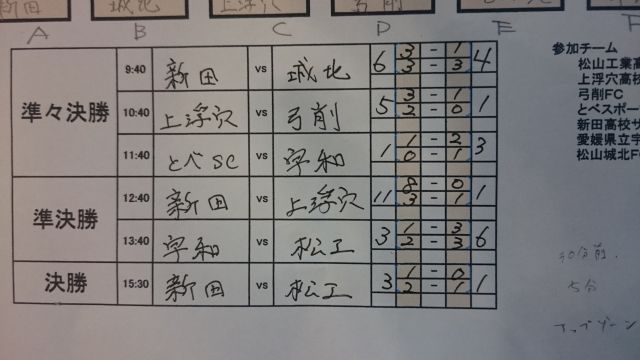 新田 城北 上浮穴 弓削
A B C D E F
準々決勝
9:40 新田 vs 城北 6 3-1 3-3 4
10:40 上浮穴 vs 弓削 5 3-1 2-0 1
11:40 とべSC vs 宇和 1 1-2 0-1 3
準決勝
12:40 新田 vs 上浮穴 11 8-0 3-1 1
13:40 宇和 vs 松工 3 1-3 2-3 6
決勝
15:30 新田 vs 松工 3 1-0 2-1 1
参加チーム
松山工業高
上浮穴高校
弓削FC
とべスポー
新田高校サ
愛媛県立宇
松山城北F
30分前.
5分
アップゾーン